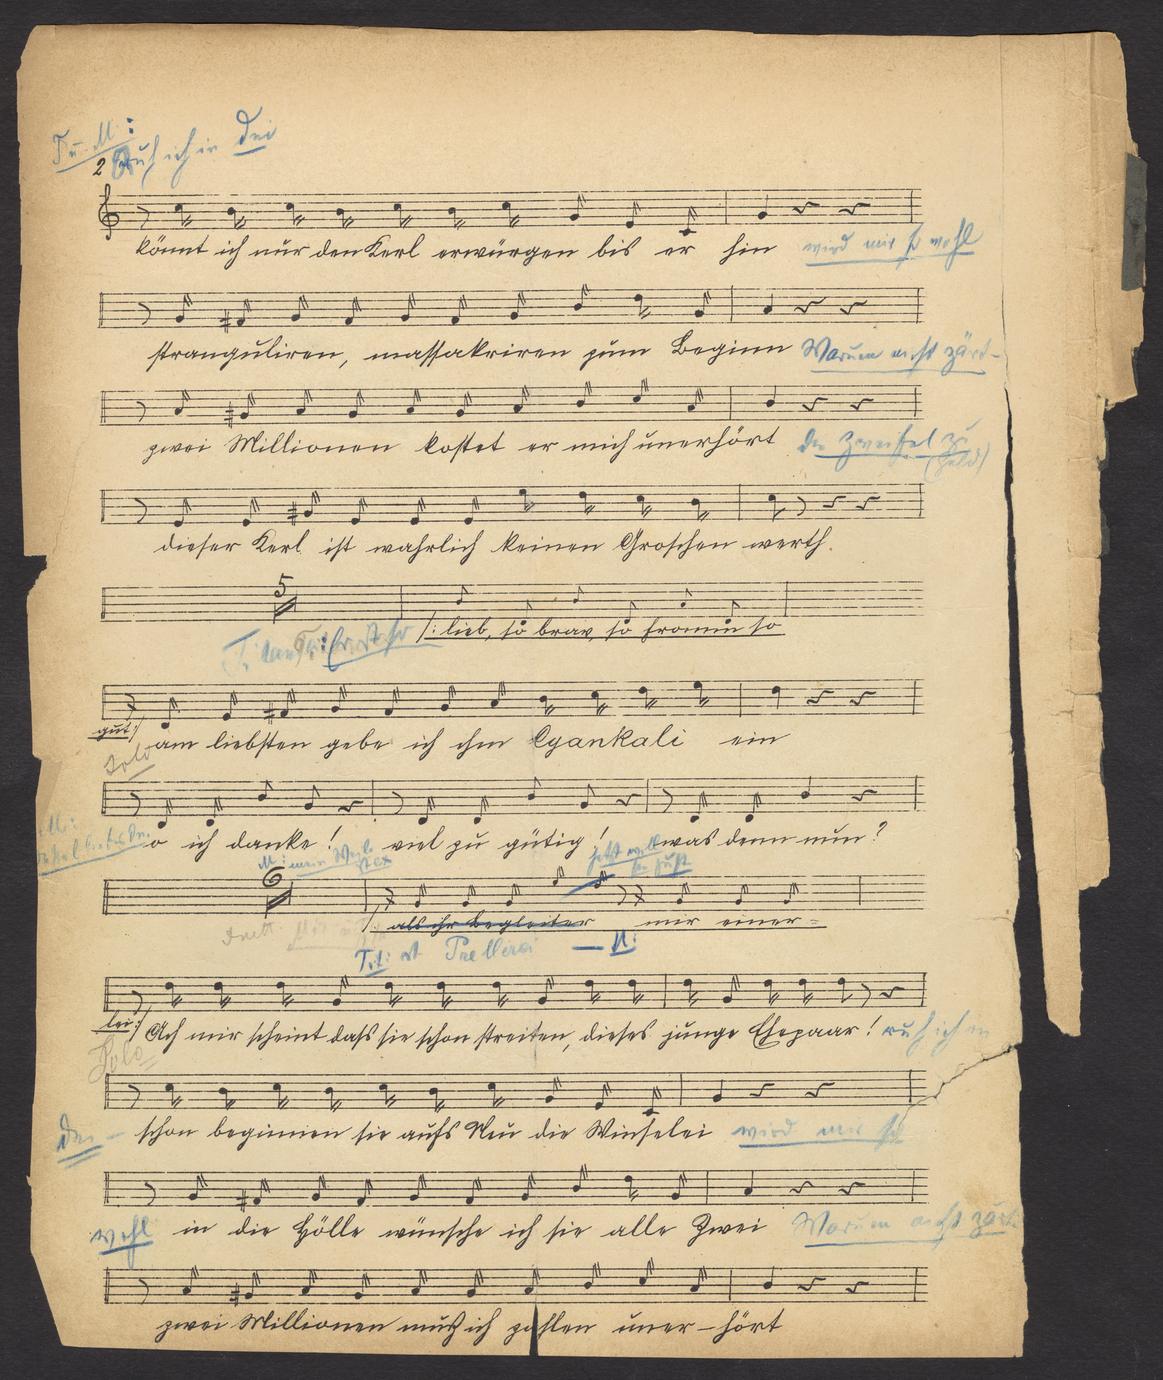 Tu. M:
2 Ruh ich in Dei
könnt ich nur den Kerl erwürgen bis er hin wird mir so wohl
stranguliren, massakriren zum Beginn Warum nicht zärt-
zwei Millionen kostet er mich unerhört die Zweifel zu
(Geld)
dieser Kerl ist wahrlich keinen Groschen werth.
5
|: lieb, so brav, so fromm so
gut :| am liebsten gebe ich ihm Cyankali ein
Solo
o ich danke! viel zu gütig! was denn nun?
M: mein Weib jetzt will
6
|: als ihr Begleiter mir einer-
Tit: ist Prellerei — M:
lei :| Ach mir scheint dass sie schon streiten, dieses junge Ehepaar! ruh ich in
Solo
Dei- schon beginnen sie aufs Neu die Winselei wird mir so
wohl in die Hölle wünsche ich sie alle Zwei Warum nicht zärt
zwei Millionen muß ich zahlen uner-hört